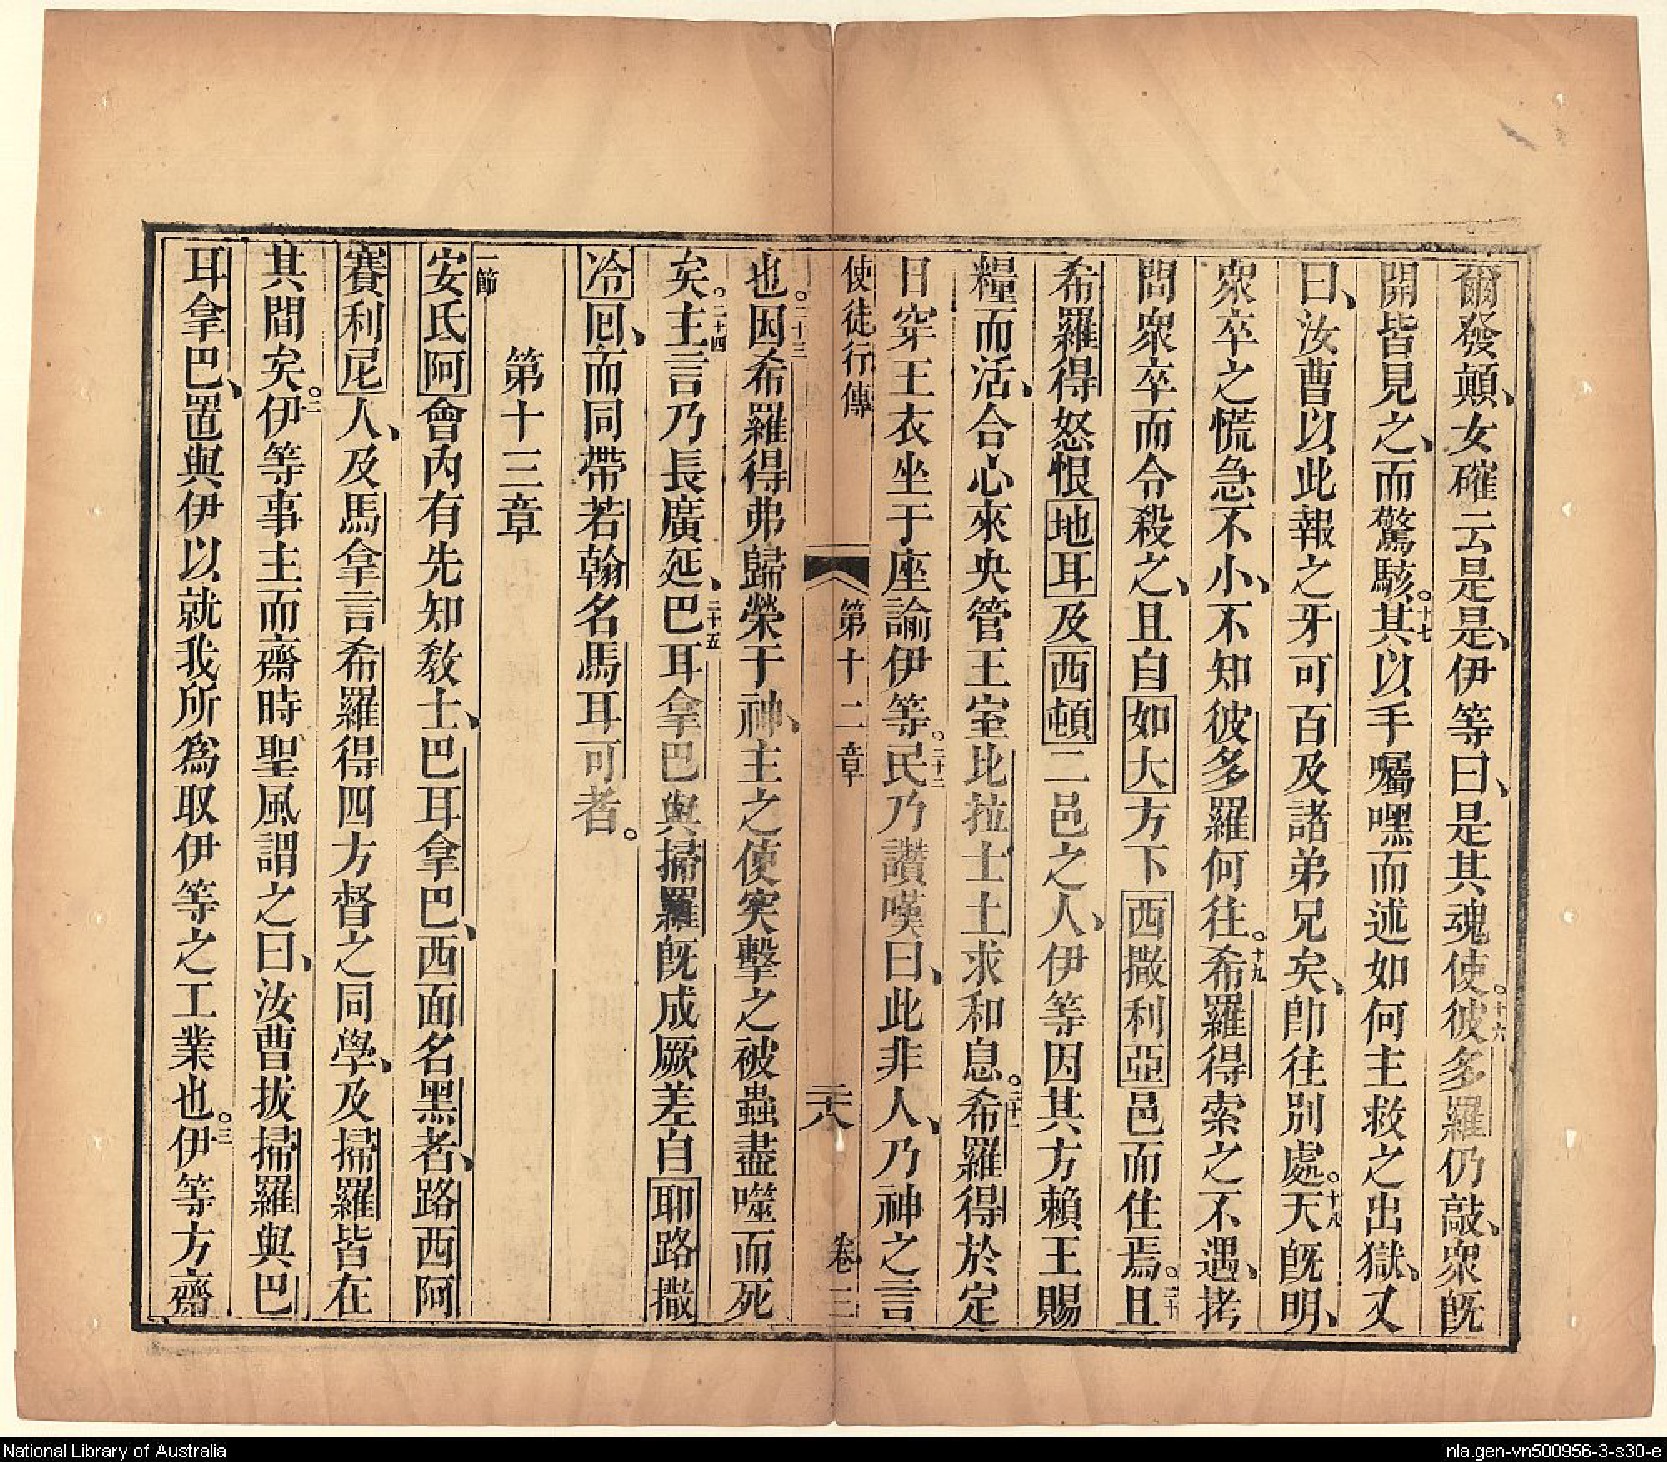 爾發顛、女確云是是、伊等曰、是其魂使。十六彼多羅仍敲、衆旣
開皆見之、而驚駭。十七其以手囑嘿而述如何主救之出獄、又
曰、汝曹以此報之牙可百及諸弟兄矣、卽往別處。十八天旣明、
衆卒之慌急不小、不知彼多羅何往。十九希羅得索之不遇、拷
問衆卒而令殺之、且自如大方下西撒利亞邑而住焉。二十且
希羅得怒恨地耳及西頓二邑之人、伊等因其方賴王賜
糧而活、合心來央管王室比拉士土求和息。二十一希羅得於定
日穿王衣坐于座諭伊等。二十二民乃讚嘆曰、此非人、乃神之言
使徒行傳 第十二章 二十八 卷三
也。二十三因希羅得弗歸榮于神、主之使突擊之被蟲盡噬而死
矣。二十四主言乃長廣延、二十五巴耳拿巴與掃羅旣成厥差自耶路撒
冷囘、而同帶若翰名馬耳可者。
第十三章
一節安氐阿會內有先知敎士、巴耳拿巴、西面名黑者、路西阿
賽利尼人、及馬拿言希羅得四方督之同學、及掃羅皆在
其間矣。二伊等事主而齋時聖風謂之曰、汝曹拔掃羅與巴
耳拿巴、置與伊以就我所爲取伊等之工業也。三伊等方齋
National Library of Australia
nla.gen-vn500956-3-s30-e